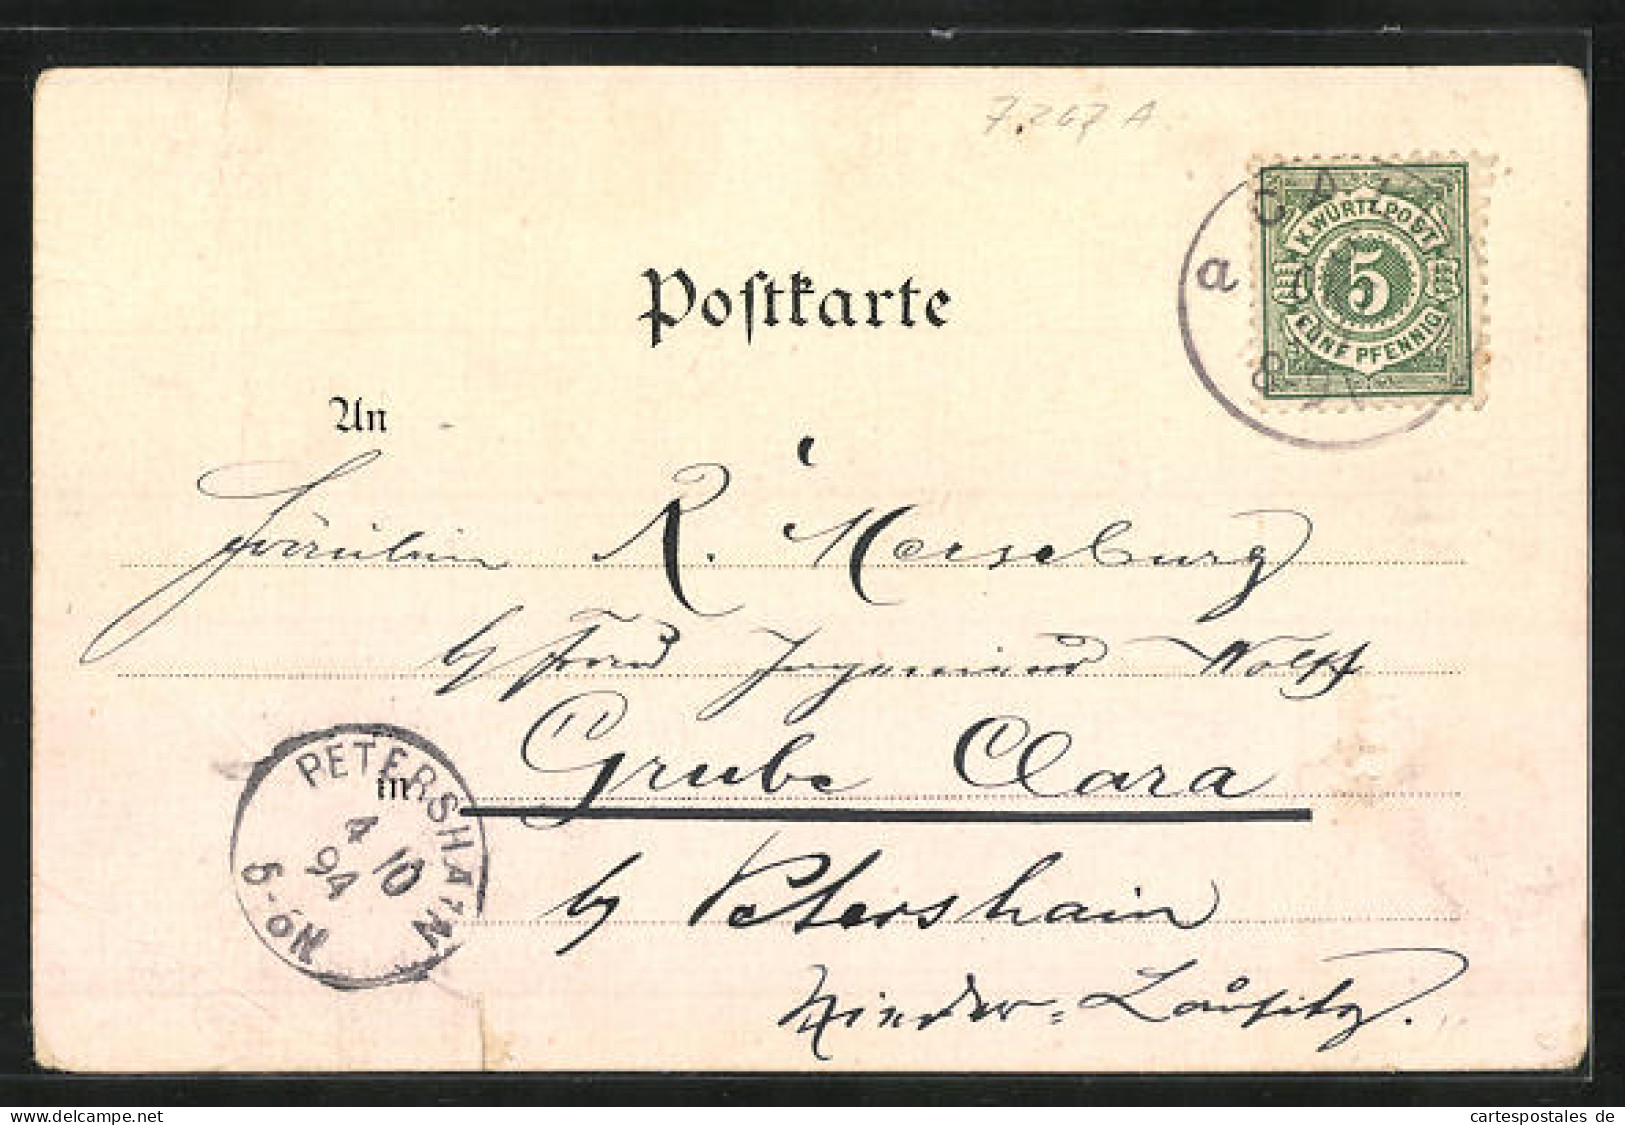 7.267 A
K. WÜRTT. POST
5
FÜNF PFENNIG
a
Postkarte
An
Fräulein R. Merseburg
b/ Frau Ingenieur Wolff
in Grube Clara
b/ Petershain
Nieder-Lausitz.
PETERSHAIN
4 10
94
5-6N
cartespostales de